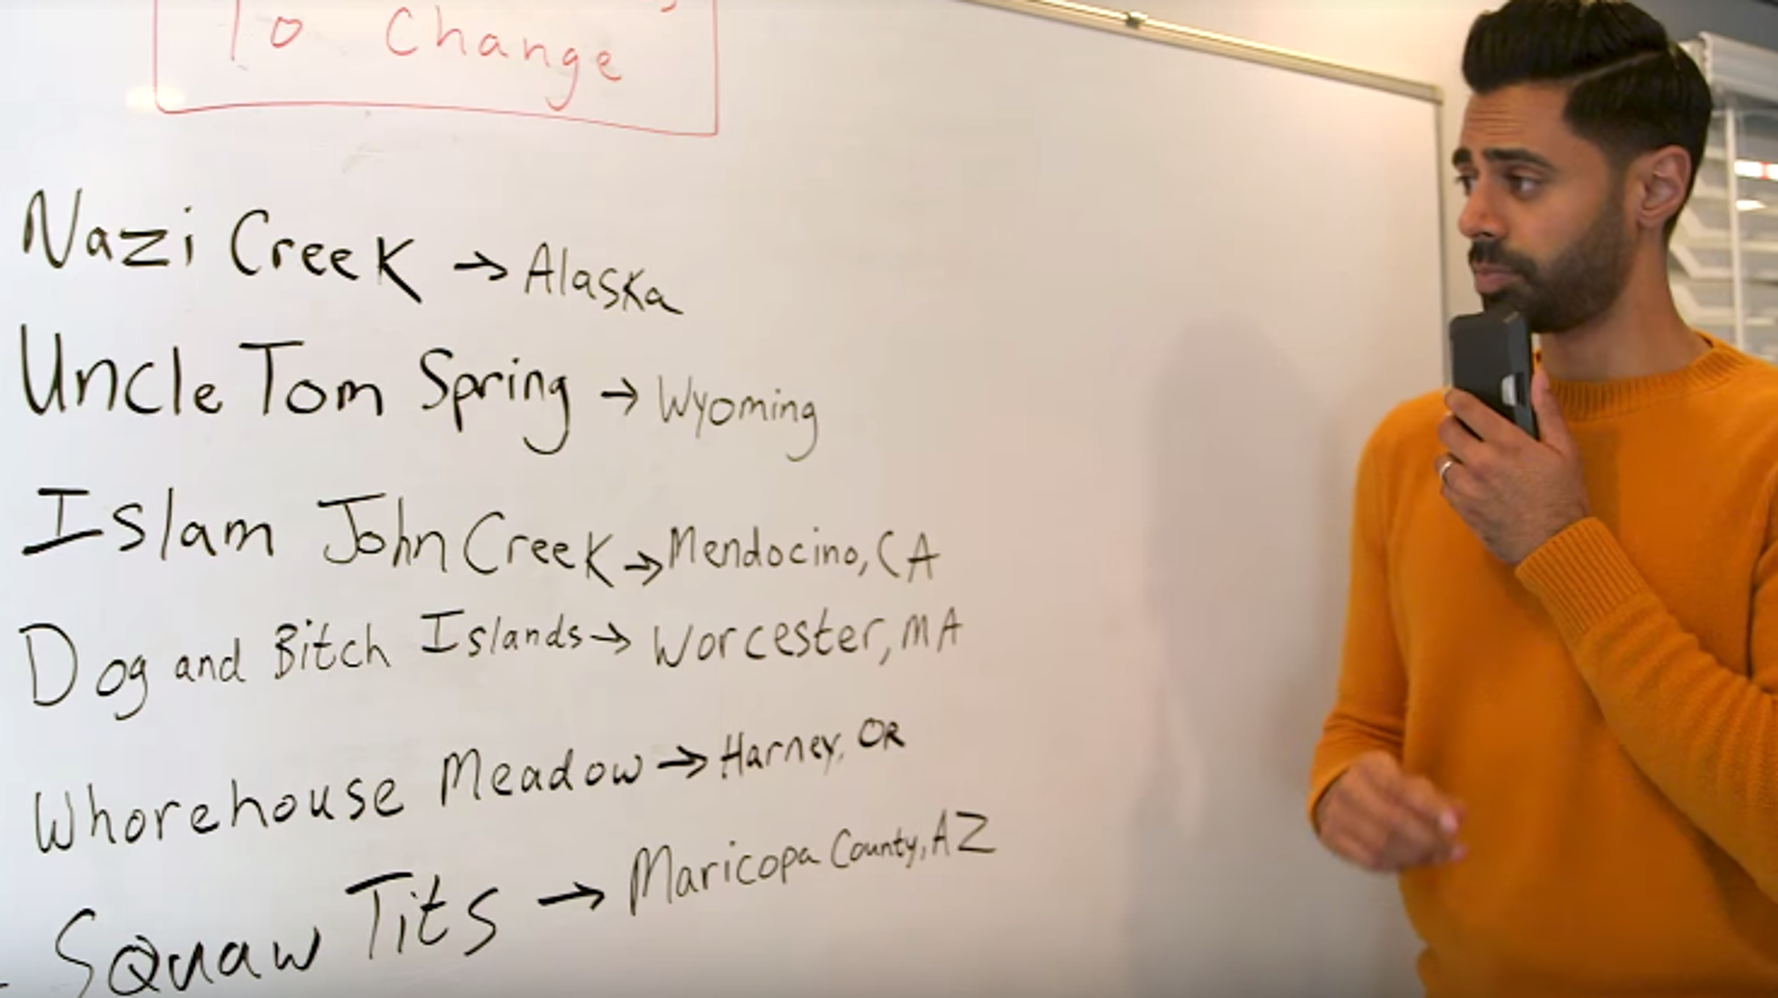 To Change
Nazi Creek → Alaska
Uncle Tom Spring → Wyoming
Islam John Creek → Mendocino, CA
Dog and Bitch Islands → Worcester, MA
Whorehouse Meadow → Harney, OR
Squaw Tits → Maricopa County, AZ